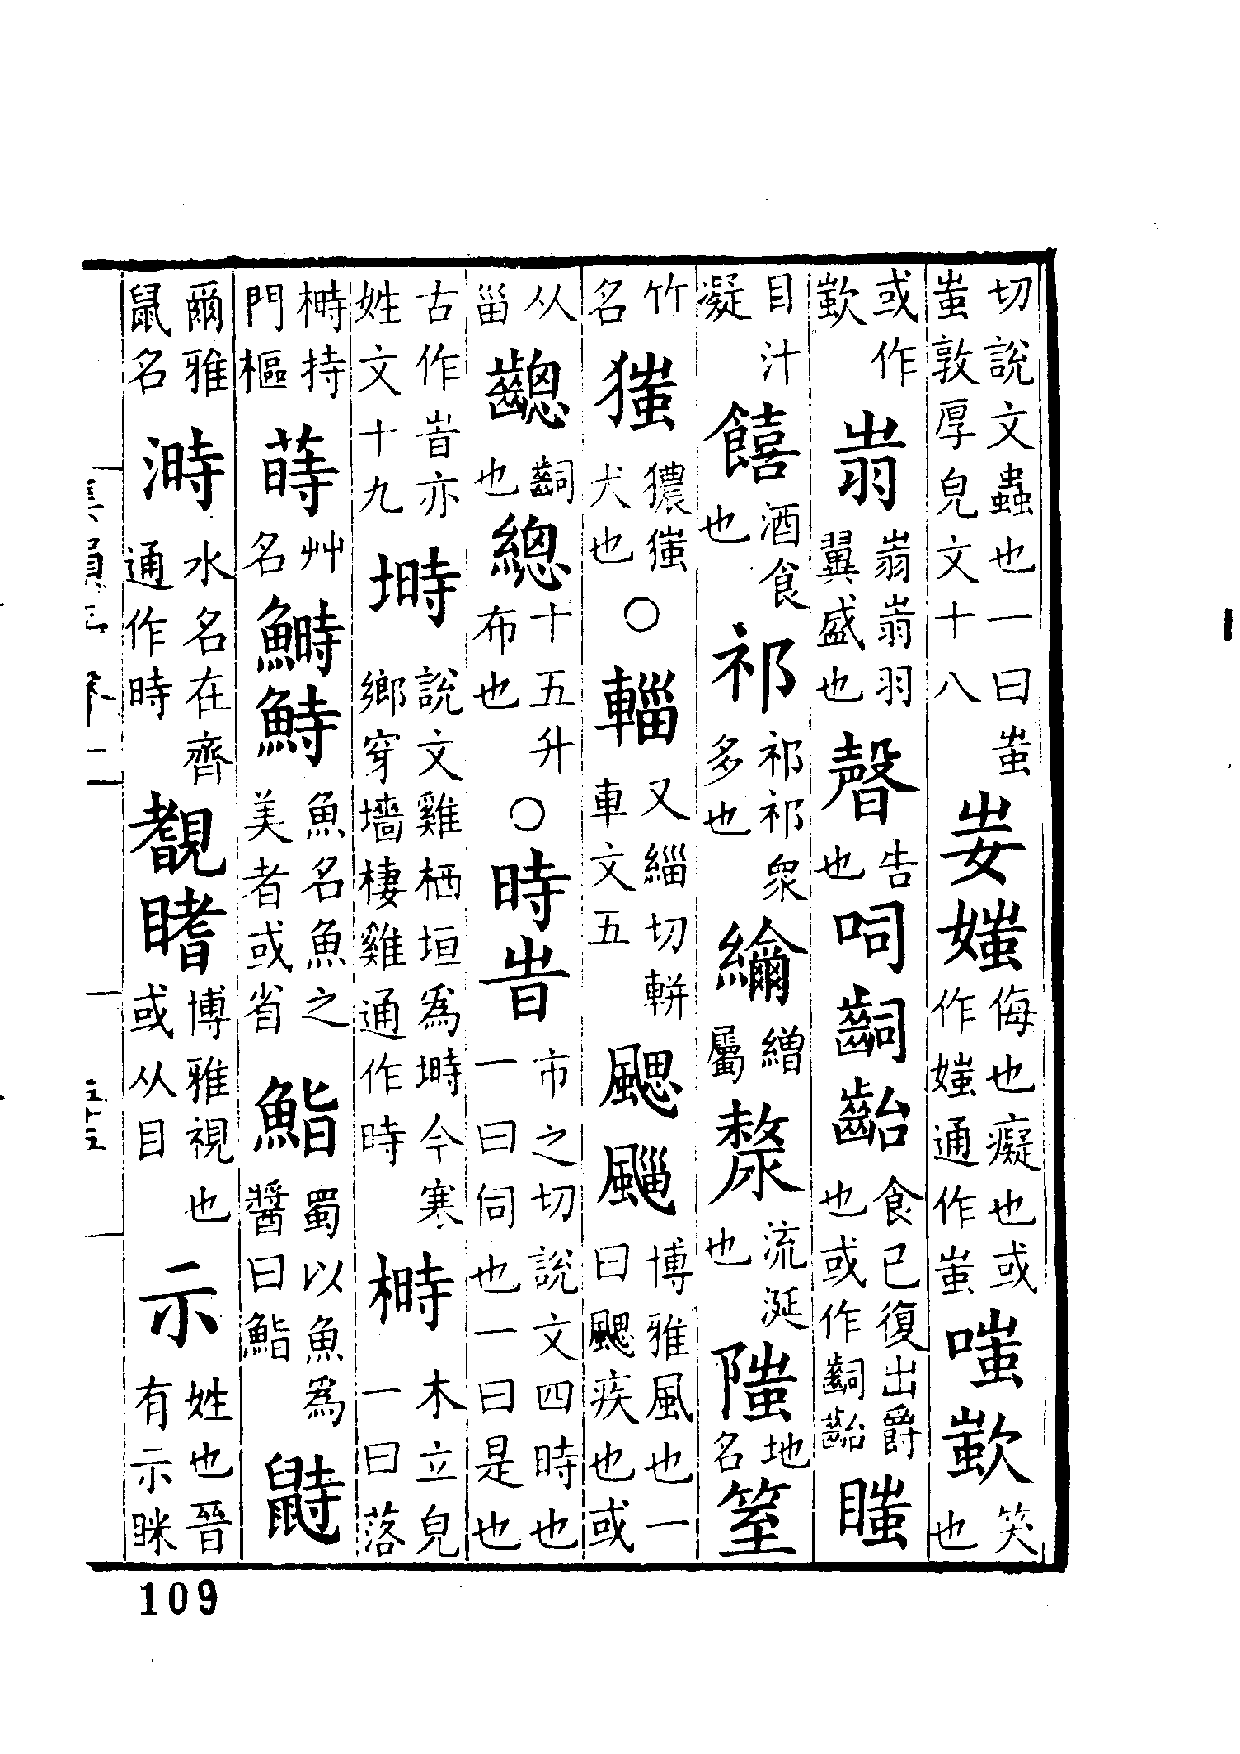 切說文蟲也一曰蚩蚩敦厚皃文十八㛂媸侮也癡也或作媸通作蚩嗤歖笑也
或作歖翤翤翤羽翼盛也告也呞齝食已復出爵也或作齝瞝
目汁凝饎酒食也祁祁祁衆多也繒屬漦流涎也地名
竹名獽犬也○輜又緇切軿車文五颸博雅風也一曰颸疾也或
从甾也緦十五升布也○時旹市之切說文四時也一曰伺也一曰是也
古作旹亦姓文十九塒說文雞栖垣爲塒今寒鄉穿墻棲雞通作時榯木立皃一曰落
榯持門樞蒔艸名鰣魚名魚之美者或省鮨蜀以魚爲醬曰鮨鼭
爾雅鼠名溡水名在齊通作時博雅視也或从目示姓也晉有示眯
109